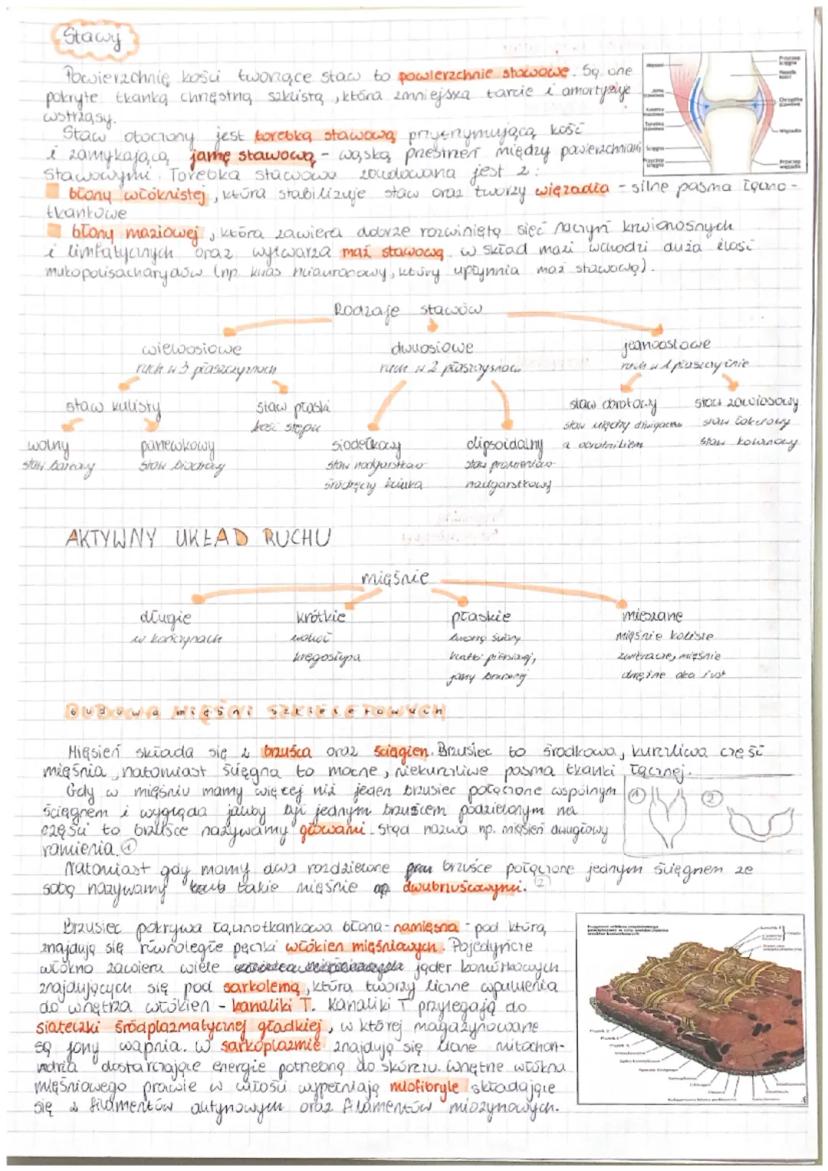 Stawy
Powierzchnię kości tworzące staw to powierzchnie stawowe. Są one
pokryte tkanką chrzęstną szklistą, która zmniejsza tarcie i amortyzuje
wstrząsy.
Staw otoczony jest torebką stawową przytrzymującą kość
i zamykającą jamę stawową - wąską przestrzeń między powierzchniami
stawowymi. Torebka stawowa zbudowana jest z:
błony włóknistej, która stabilizuje staw oraz tworzy więzadła - silne pasma łączno-
tkankowe
błony maziowej, która zawiera dobrze rozwiniętą sieć naczyń krwionośnych
i limfatycznych oraz wytwarza maź stawową. w skład mazi wchodzi duża ilość
mukopolisacharydów (np. kwas hialuronowy, który upłynnia maź stawową).
Rodzaje stawów
wieloosiowe dwuosiowe jednoosiowe
ruch w 3 płaszczyznach ruch w 2 płaszczyznach ruch w 1 płaszczyźnie
staw kulisty staw płaski staw obrotowy staw zawiasowy
kości stopu staw między dźwigaczem staw łokciowy
wolny panewkowy siodełkowy elipsoidalny a obrotnikiem staw kolanowy
staw barkowy staw biodrowy staw nadgarstkowo staw promieniowo
śródręczny kciuka nadgarstkowy
AKTYWNY UKŁAD RUCHU
mięśnie
długie krótkie płaskie mieszane
w kończynach wokół tworzą ściany mięśnie koliste
kręgosłupa klatki piersiowej, zwieracze, mięśnie
jamy brzusznej okrężne oka i ust
BUDOWA MIĘŚNI SZKIELETOWYCH
Mięsień składa się z brzuśca oraz ścięgien. Brzusiec to środkowa, kurczliwa część
mięśnia, natomiast ścięgna to mocne, niekurczliwe pasma tkanki łącznej.
Gdy w mięśniu mamy więcej niż jeden brzusiec połączone wspólnym
ścięgnem i wygląda jakby był jednym brzuścem podzielonym na
części to brzuśce nazywamy głowami. Stąd nazwa np. mięsień dwugłowy
ramienia. ①
① ②
Natomiast gdy mamy dwa rozdzielone brzuśce połączone jednym ścięgnem ze
sobą nazywamy takie mięśnie dwubrzuścowymi. ②
Brzusiec pokrywa łącznotkankowa błona - namięsna - pod którą
znajdują się równoległe pęczki włókien mięśniowych. Pojedyncze
włókno zawiera wiele jąder komórkowych
znajdujących się pod sarkolemą, która tworzy liczne wpuklenia
do wnętrza włókien - kanaliki T. Kanaliki T przylegają do
siateczki śródplazmatycznej gładkiej, w której magazynowane
są jony wapnia. W sarkoplazmie znajdują się liczne mitochon-
dria dostarczające energię potrzebną do skurczu. Wnętrze włókna
mięśniowego prawie w całości wypełniają miofibryle składające
się z filamentów aktynowych oraz filamentów miozynowych.